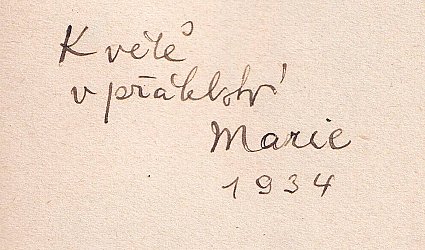 Květě
v přátelství
Marie
1934